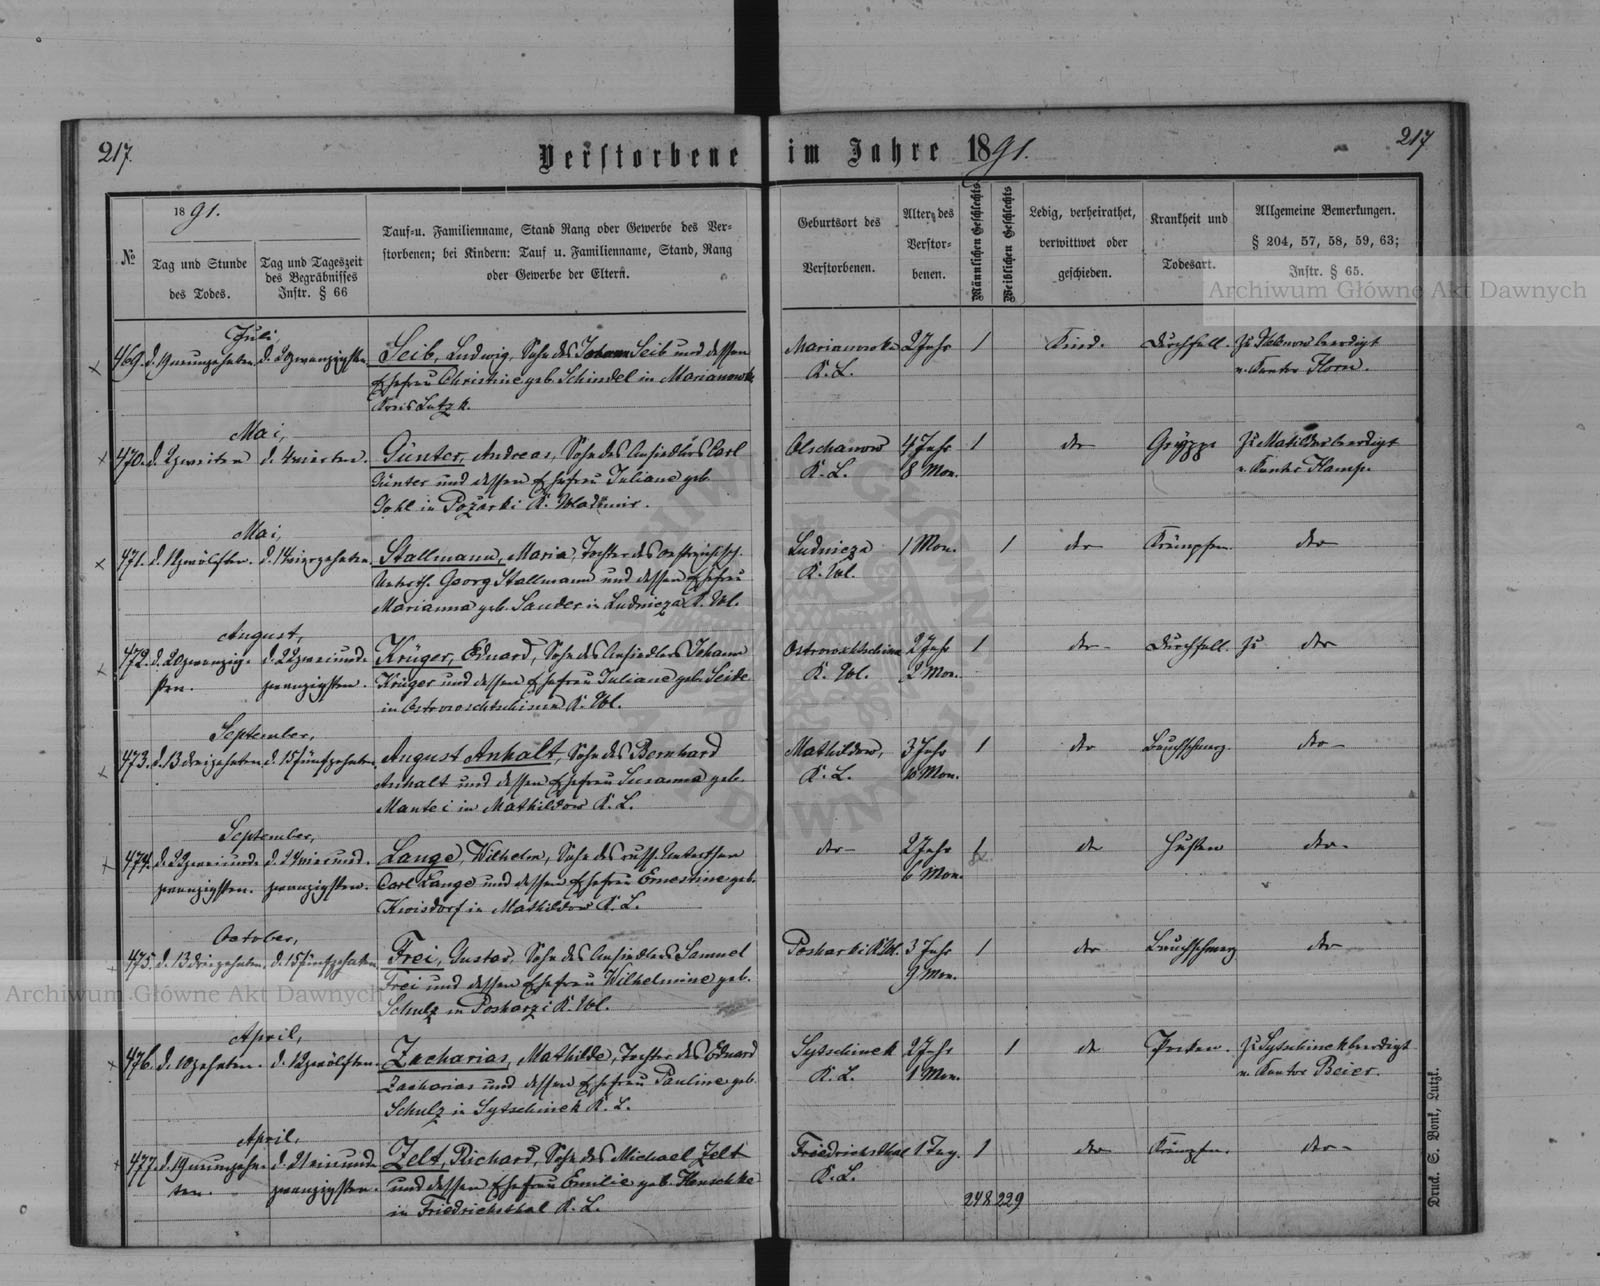 217.
Verstorbene im Jahre 1891.
217
№
1891.
Tag und Stunde
des Todes.
Tag und Tageszeit
des Begräbnisses
Instr. § 66
Tauf-u. Familienname, Stand Rang oder Gewerbe des Ver-
storbenen; bei Kindern: Tauf u. Familienname, Stand, Rang
oder Gewerbe der Eltern.
Geburtsort des
Verstorbenen.
Alter des
Verstor-
benen.
Männlichen Geschlechts
Weiblichen Geschlechts
Ledig, verheirathet,
verwittwet oder
geschieden.
Krankheit und
Todesart.
Allgemeine Bemerkungen.
§ 204, 57, 58, 59, 63;
Instr. § 65.
Archiwum Główne Akt Dawnych
Juli,
469. d. 19 neunzehnten d. 20 zwanzigsten Seib, Ludwig, Sohn des Johann Seib und dessen Marianowka 2 Jahr 1 Kind. Durchfall. beerdigt
Ehefrau Christine geb. Schindel in Marianowka K. L. v. Kantor Horn.
Kreis Lutzk.
Mai,
470. d. 2 zweiten d. 4 vierten. Günter, Andreas, Sohn des Ansiedlers Carl Olschanow 4 Jahr 1 do Grippe Zu Matildow beerdigt
Günter und dessen Ehefrau Juliane geb. K. L. 8 Mon. v. Kantor Hamp.
Gohl in Pozarki K. Wladimir.
Mai,
471. d. 12 zwölften. d. 14 vierzehnten. Stallmann, Maria, Tochter des oestreichisch. Ludwicza 1 Mon. 1 do Krämpfen. do
Unterth. Georg Stallmann und dessen Ehefrau K. Wl.
Marianna geb. Sander in Ludwicza K. Wl.
August,
472. d. 20 zwanzig- d. 22 zweiund- Krüger, Eduard, Sohn des Ansiedlers Johann 2 Jahr 1 do Durchfall. Zu do
sten. zwanzigsten. Krüger und dessen Ehefrau Juliane geb. Seide K. Wl. 2 Mon.
in Ostrowschtschisna K. Wl.
September,
473. d. 13 dreizehnten d. 15 fünfzehnten. August Anhalt, Sohn des Bernhard Mathildow, 3 Jahr 1 do Bauchschmerz. do
Anhalt und dessen Ehefrau Susanna geb. K. L. 10 Mon.
Mantei in Mathildow K. L.
September,
474. d. 22 zweiund- d. 24 vierund- Lange, Wilhelm, Sohn des russ. Unterthan do 2 Jahr 1 do Husten do
zwanzigsten. zwanzigsten. Carl Lange und dessen Ehefrau Ernestine geb. 6 Mon.
Kwisdorf in Mathildow K. L.
October,
475. d. 13 dreizehnten. d. 15 fünfzehnten Frei, Gustav. Sohn des Ansiedlers Samuel Posharki K. Wl. 3 Jahr 1 do Bauchschmerz do
Frei und dessen Ehefrau Wilhelmine geb. 9 Mon.
Schulz in Posharzi K. Wl.
Archiwum Główne Akt Dawnych
April,
476. d. 10 zehnten. d. 12 zwölften. Zacharias, Mathilde, Tochter des Eduard Sytschinek 2 Jahr 1 do Pocken. Zu Sytschinek beerdigt
Zacharias und dessen Ehefrau Pauline geb. K. L. 1 Mon. v. Kantor Beier.
Schulz in Sytschinek K. L.
April,
477. d. 19 neunzehn- d. 21 einund- Zelt, Richard, Sohn des Michael Zelt Friedrichsthal 1 Tag. 1 do Krämpfen. do
ten. zwanzigsten. und dessen Ehefrau Emilie geb. Henschke K. L.
in Friedrichsthal K. L. 248 229
Druck. S. Bonk, Lutzk.